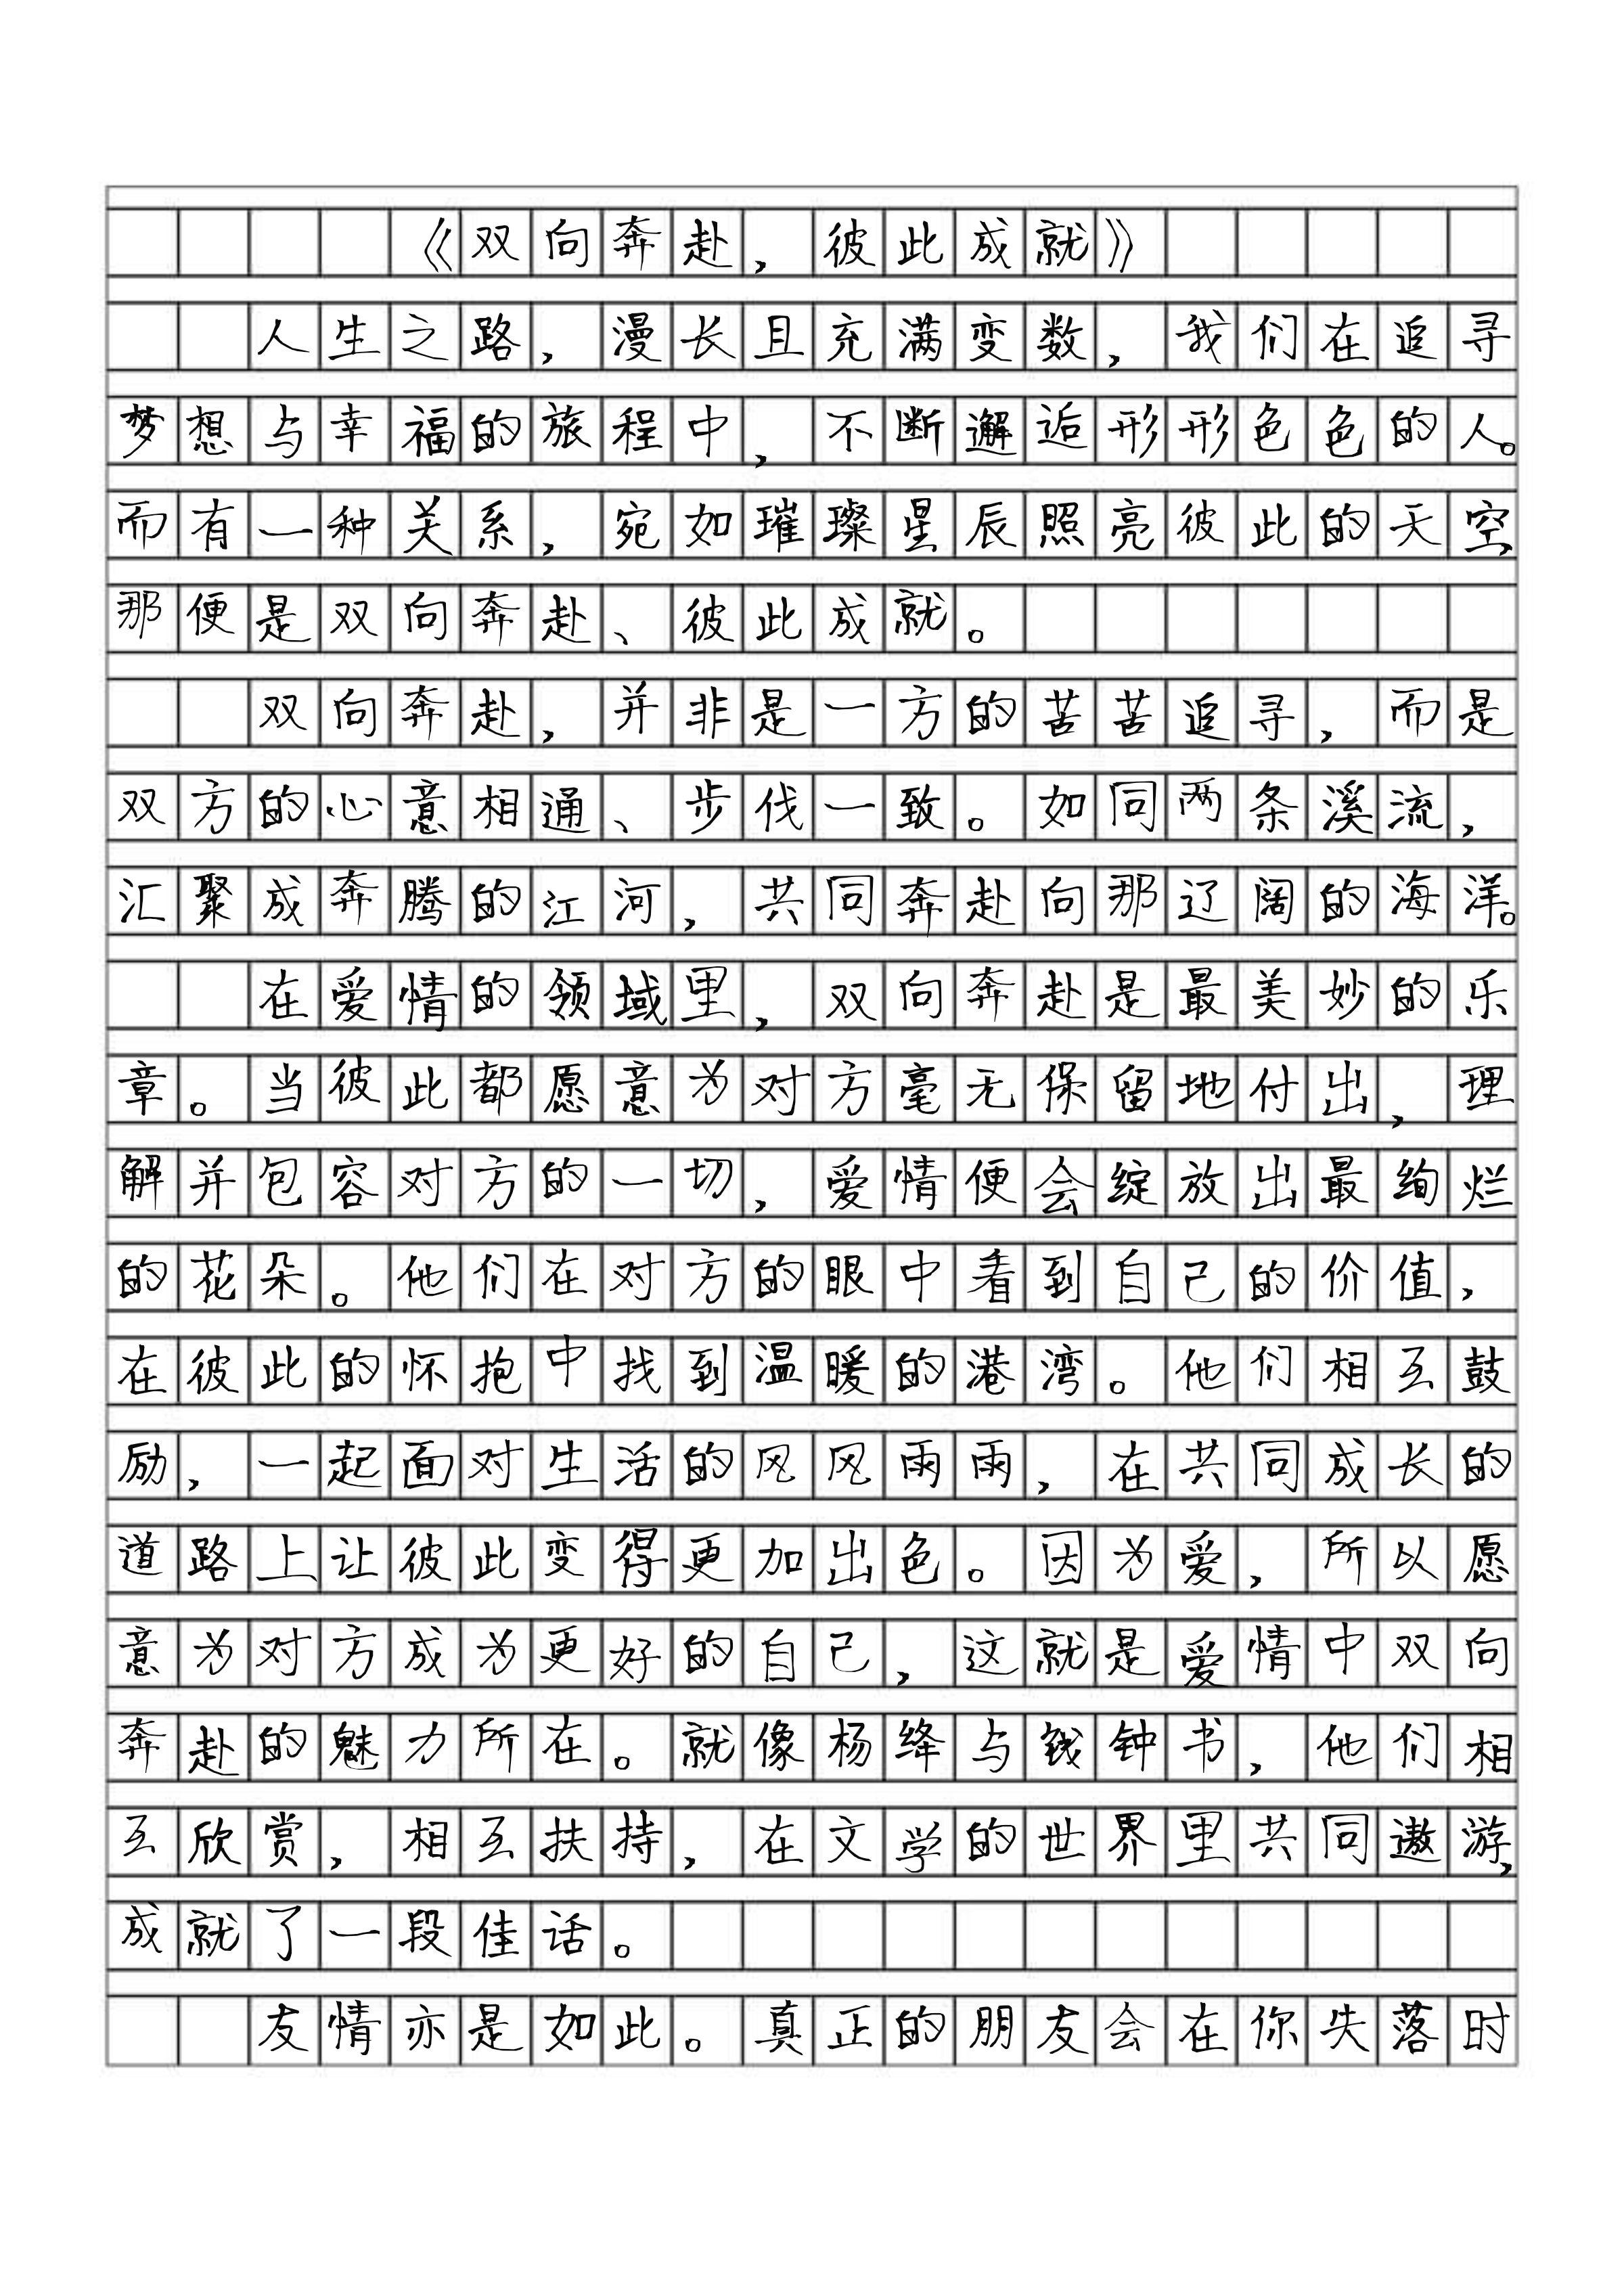 《双向奔赴，彼此成就》
人生之路，漫长且充满变数，我们在追寻
梦想与幸福的旅程中，不断邂逅形形色色的人。
而有一种关系，宛如璀璨星辰照亮彼此的天空，
那便是双向奔赴、彼此成就。
双向奔赴，并非是一方的苦苦追寻，而是
双方的心意相通、步伐一致。如同两条溪流，
汇聚成奔腾的江河，共同奔赴向那辽阔的海洋。
在爱情的领域里，双向奔赴是最美妙的乐
章。当彼此都愿意为对方毫无保留地付出，理
解并包容对方的一切，爱情便会绽放出最绚烂
的花朵。他们在对方的眼中看到自己的价值，
在彼此的怀抱中找到温暖的港湾。他们相互鼓
励，一起面对生活的风风雨雨，在共同成长的
道路上让彼此变得更加出色。因为爱，所以愿
意为对方成为更好的自己，这就是爱情中双向
奔赴的魅力所在。就像杨绛与钱钟书，他们相
互欣赏，相互扶持，在文学的世界里共同遨游，
成就了一段佳话。
友情亦是如此。真正的朋友会在你失落时